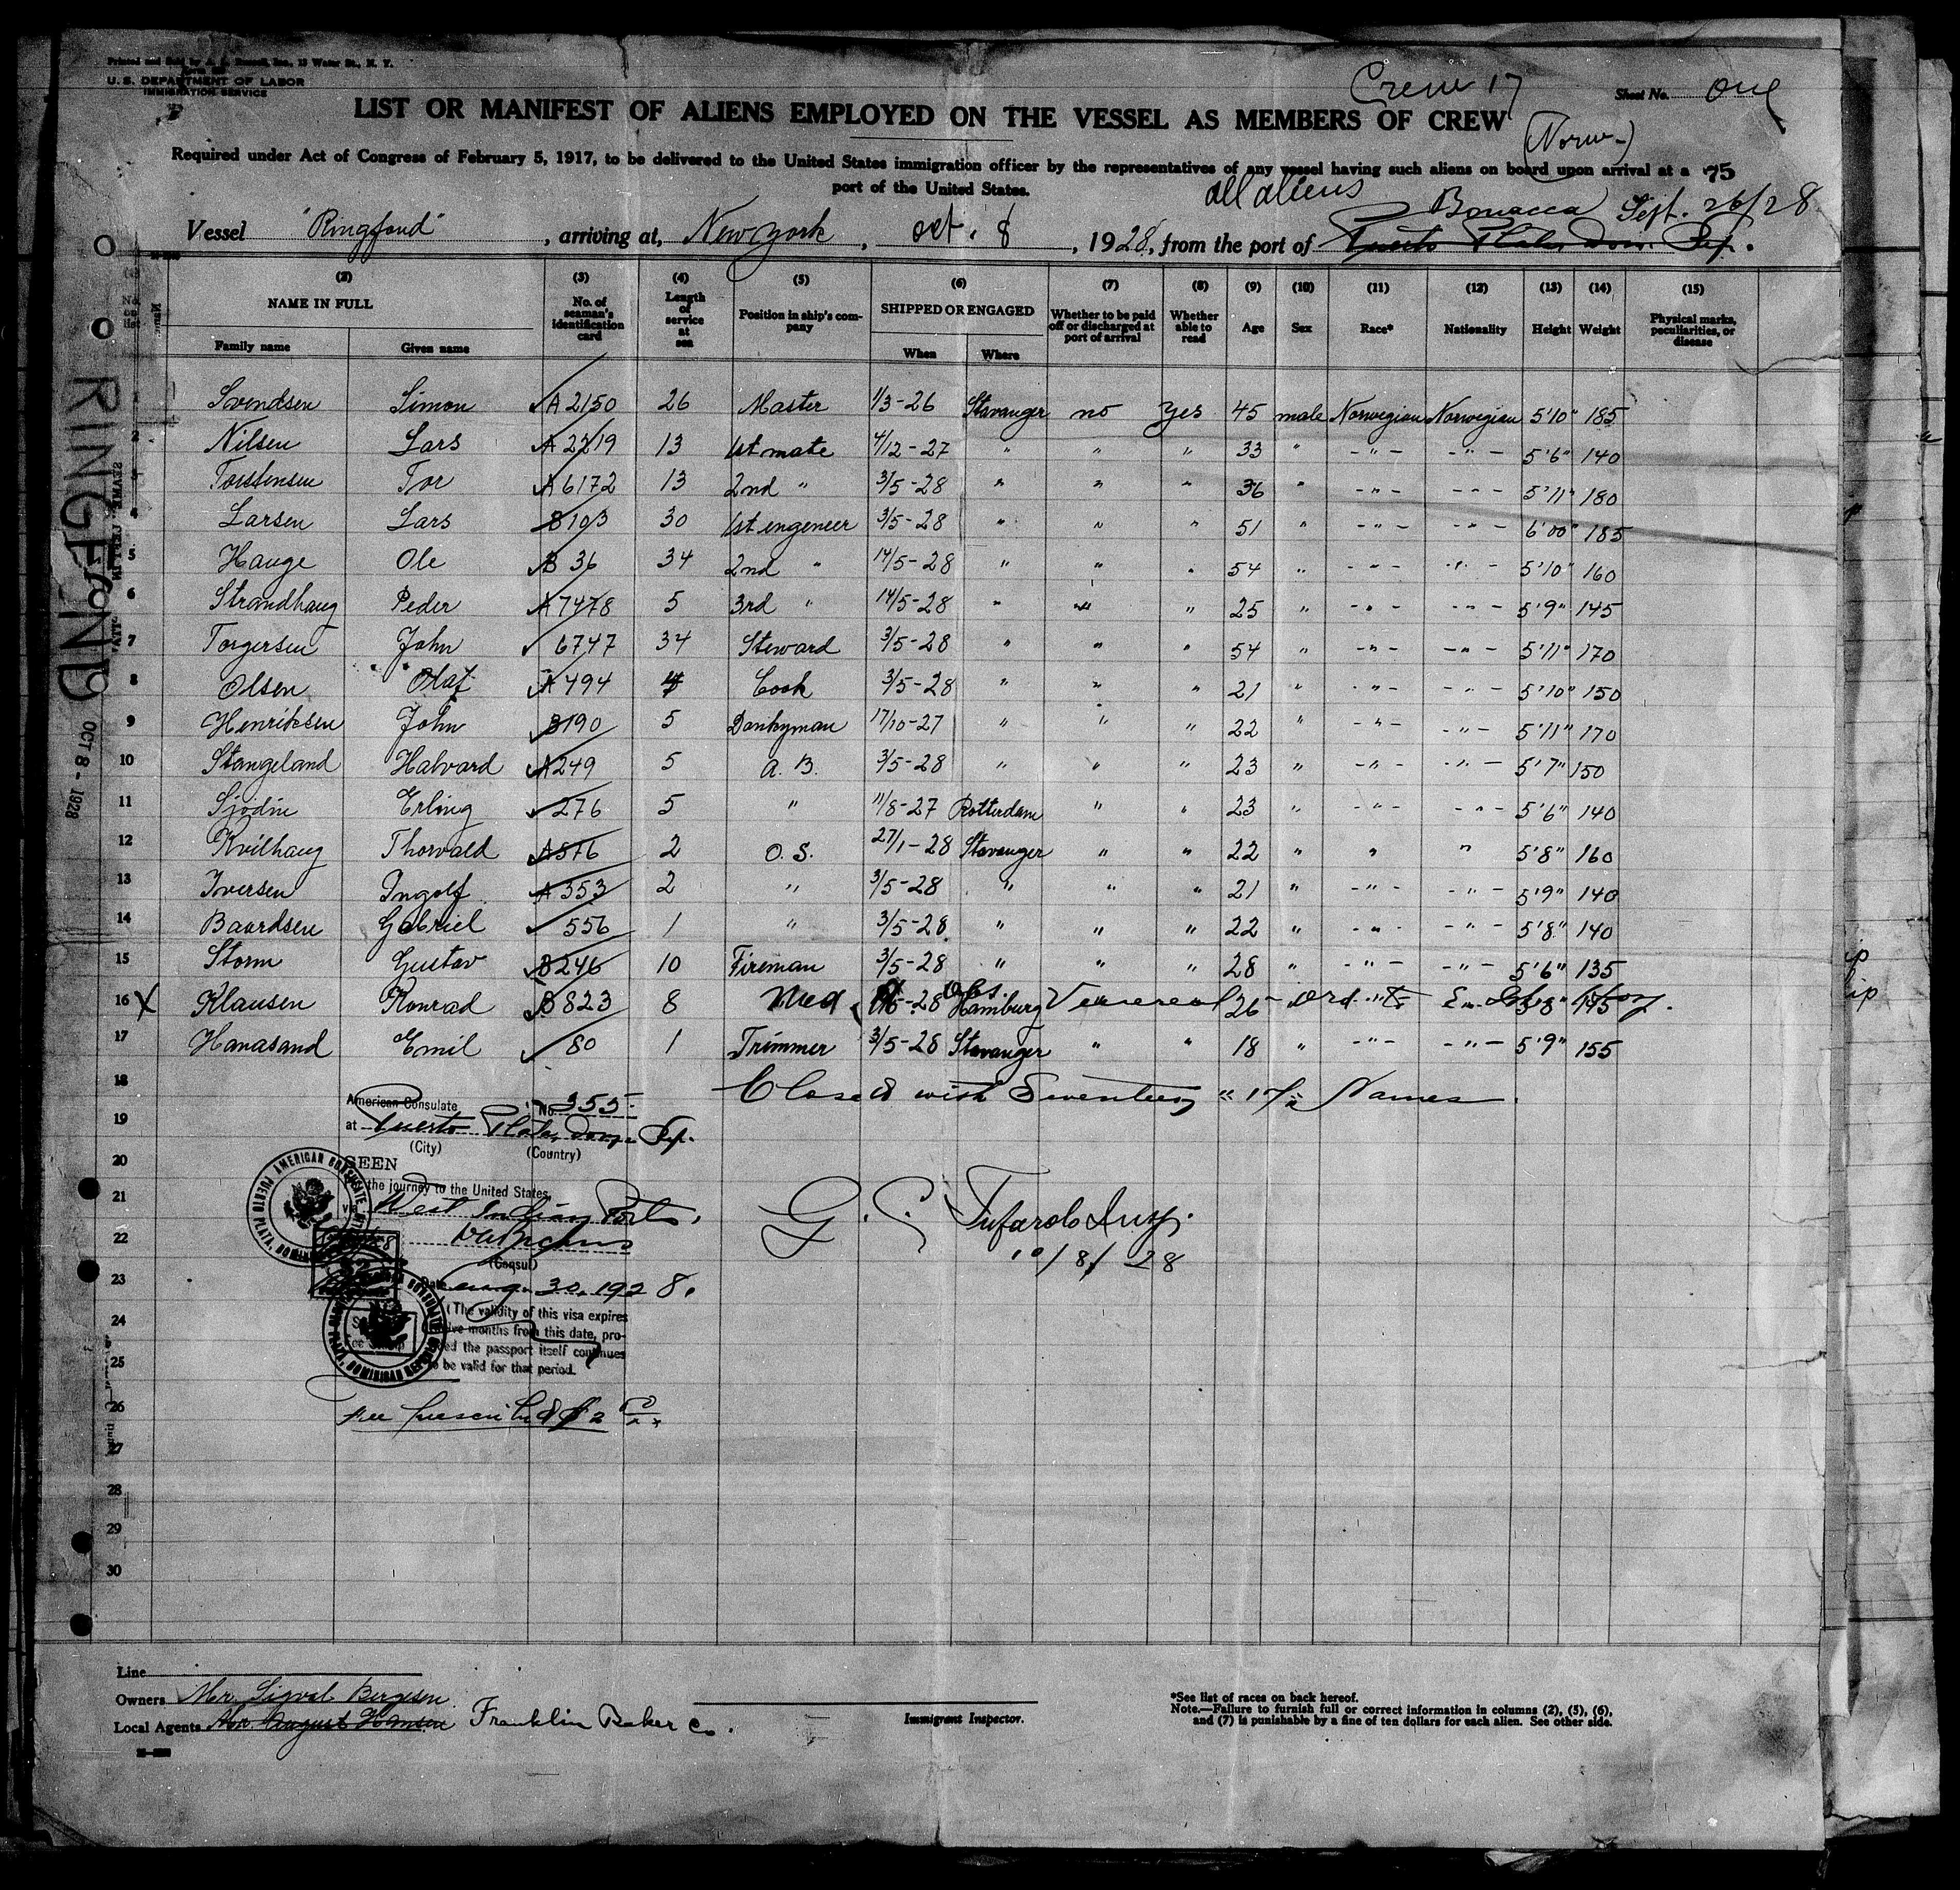 Printed and Sold by A. Russell, Inc., 13 Water St., N. Y.
U. S. DEPARTMENT OF LABOR
IMMIGRATION SERVICE
Crew 17
Sheet No. One
LIST OR MANIFEST OF ALIENS EMPLOYED ON THE VESSEL AS MEMBERS OF CREW
(Norw-)
Required under Act of Congress of February 5, 1917, to be delivered to the United States immigration officer by the representatives of any vessel having such aliens on board upon arrival at a
75
port of the United States.
all aliens
Bonacca Sept. 26/28
Vessel "Ringfond", arriving at, New York, Oct. 8, 1928, from the port of Puerto Plata, Dom. Rep.
(2) (3) (4) (5) (6) (7) (8) (9) (10) (11) (12) (13) (14) (15)
No. on list
NAME IN FULL
Family name Given name
No. of seaman's identification card
Length of service at sea
Position in ship's company
SHIPPED OR ENGAGED
When Where
Whether to be paid off or discharged at port of arrival
Whether able to read
Age Sex Race* Nationality Height Weight
Physical marks, peculiarities, or disease
RINGFOND
OCT 8 - 1928
Svendsen Simon A 2150 26 Master 1/3-26 Stavanger no yes 45 male Norwegian Norwegian 5'10" 185
2 Nilsen Lars A 2219 13 1st mate 4/12-27 " " " 33 " -"- -"- 5'6" 140
Torstensen Tor A 6172 13 2nd " 3/5-28 " " " 36 " -"- -"- 5'11" 180
4 Larsen Lars B 103 30 1st engeneer 3/5-28 " " " 51 " -"- -"- 6'00" 185
5 Hauge Ole B 36 34 2nd " 14/5-28 " " " 54 " -"- -"- 5'10" 160
6 Strandhaug Peder A 7478 5 3rd " 14/5-28 " " " 25 " -"- -"- 5'9" 145
7 Torgersen John 6747 34 Steward 3/5-28 " " " 54 " -"- -"- 5'11" 170
8 Olsen Olaf A 494 Cook 3/5-28 " " " 21 " -"- -"- 5'10" 150
9 Henriksen John B190 5 Donkyman 17/10-27 " " " 22 " -"- -"- 5'11" 170
10 Stangeland Halvard A249 5 A. B. 3/5-28 " " " 23 " -"- -"- 5'7" 150
11 Sjodin Erling 276 5 " 11/8-27 Rotterdam " " 23 " -"- -"- 5'6" 140
12 Kvilhaug Thorvald A576 2 O. S. 27/1-28 Stavanger " " 22 " " " 5'8" 160
13 Iversen Ingolf A 353 2 " 3/5-28 " " " 21 " -"- -"- 5'9" 140
14 Baardsen Gabriel 556 1 " 3/5-28 " " " 22 " -"- -"- 5'8" 140
15 Storm Gustav B246 10 Fireman 3/5-28 " " " 28 " -"- -"- 5'6" 135
16 X Klausen Konrad B 823 8 Med -28 Hamburg Venereal 26 145
17 Hanasand Emil 80 1 Trimmer 3/5-28 Stavanger " " 18 " -"- -"- 5'9" 155
18 Closed with Seventeen "17" Names
American Consulate No. 355
19
at Puerto Plata, Dom. Rep.
(City) (Country)
20
SEEN
the journey to the United States,
21
via West Indian Ports.
22
(Consul)
PUERTO PLATA, DOMINICAN REPUBLIC
AMERICAN CONSULATE
G. Tufarolo Insp.
10/8/28
23
Date Aug. 30, 1928.
(The validity of this visa expires
24
twelve months from this date, pro-
vided the passport itself continues
25
to be valid for that period.
26
Fee prescribed $2
27
28
29
30
Line
Owners Mr. Sigval Bergesen
Local Agents Mr. August Hansen Franklin Baker Co.
Immigrant Inspector.
*See list of races on back hereof.
Note.—Failure to furnish full or correct information in columns (2), (5), (6),
and (7) is punishable by a fine of ten dollars for each alien. See other side.